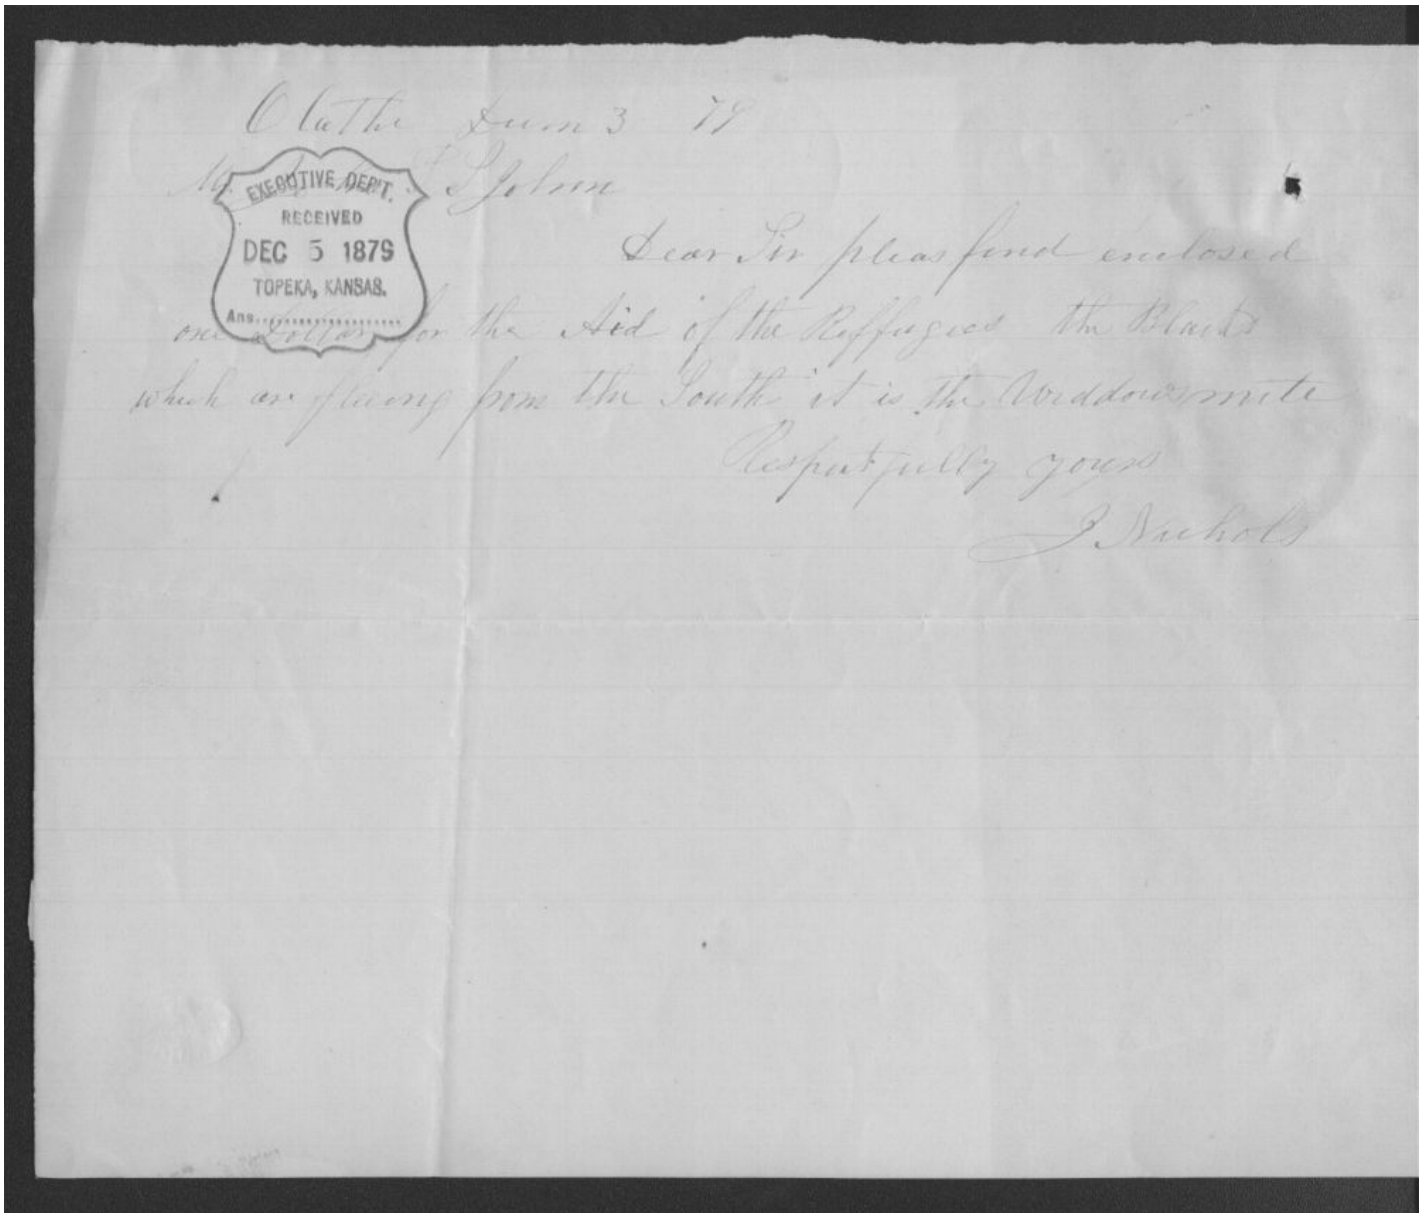 Olathe Decm 3 79
Mr. St John
EXECUTIVE DEP'T.
RECEIVED
DEC 5 1879
TOPEKA, KANSAS.
Ans
Dear Sir pleas find enclosed
one Dollar for the Aid of the Reffugees the Blacks
which are fleaing from the South it is the Widdows mite
Respectfully yours
J Nichols